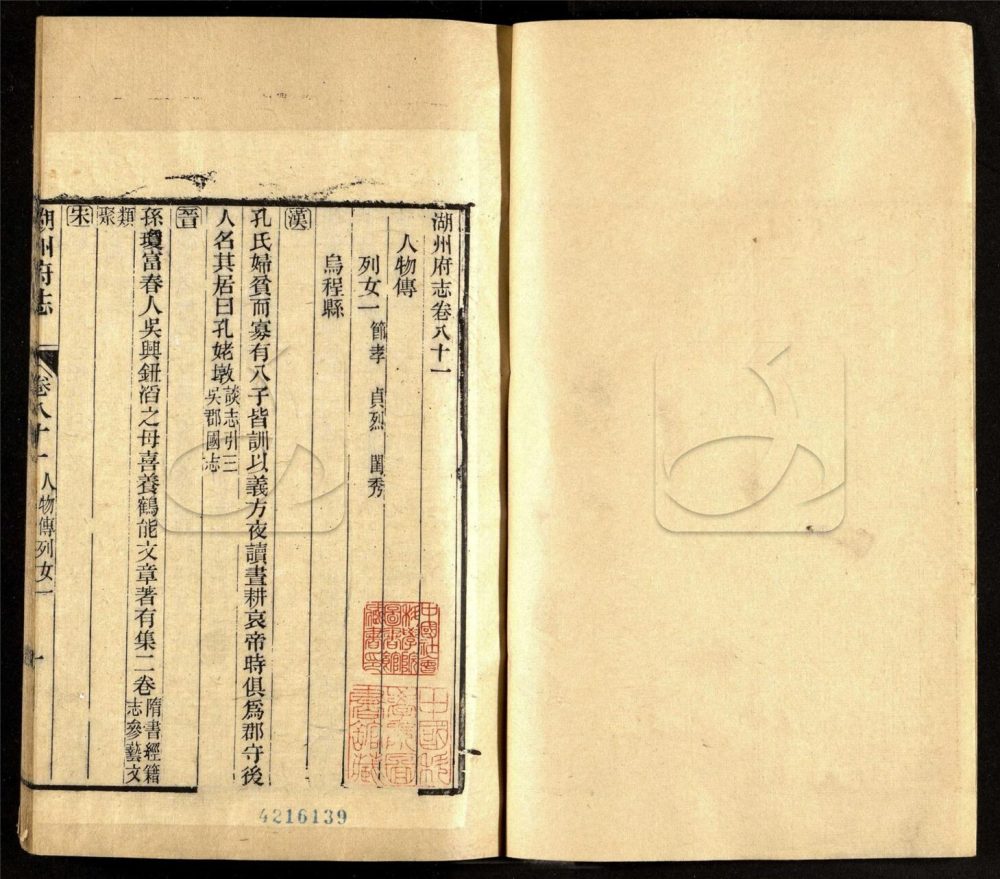 湖州府志卷八十一
人物傳
列女一 節孝 貞烈 閨秀
烏程縣
漢
孔氏婦貧而寡有八子皆訓以義方夜讀晝耕哀帝時俱爲郡守後
人名其居曰孔姥墩談志引三吳郡國志
晉
孫瓊富春人吳興鈕滔之母喜養鶴能文章著有集二卷隋書經籍志參藝文
類聚
宋
湖州府志 卷八十一 人物傳列女一 一
中國社會
科學院
圖書館
藏書印
中國科
學院圖
書館藏
4216139